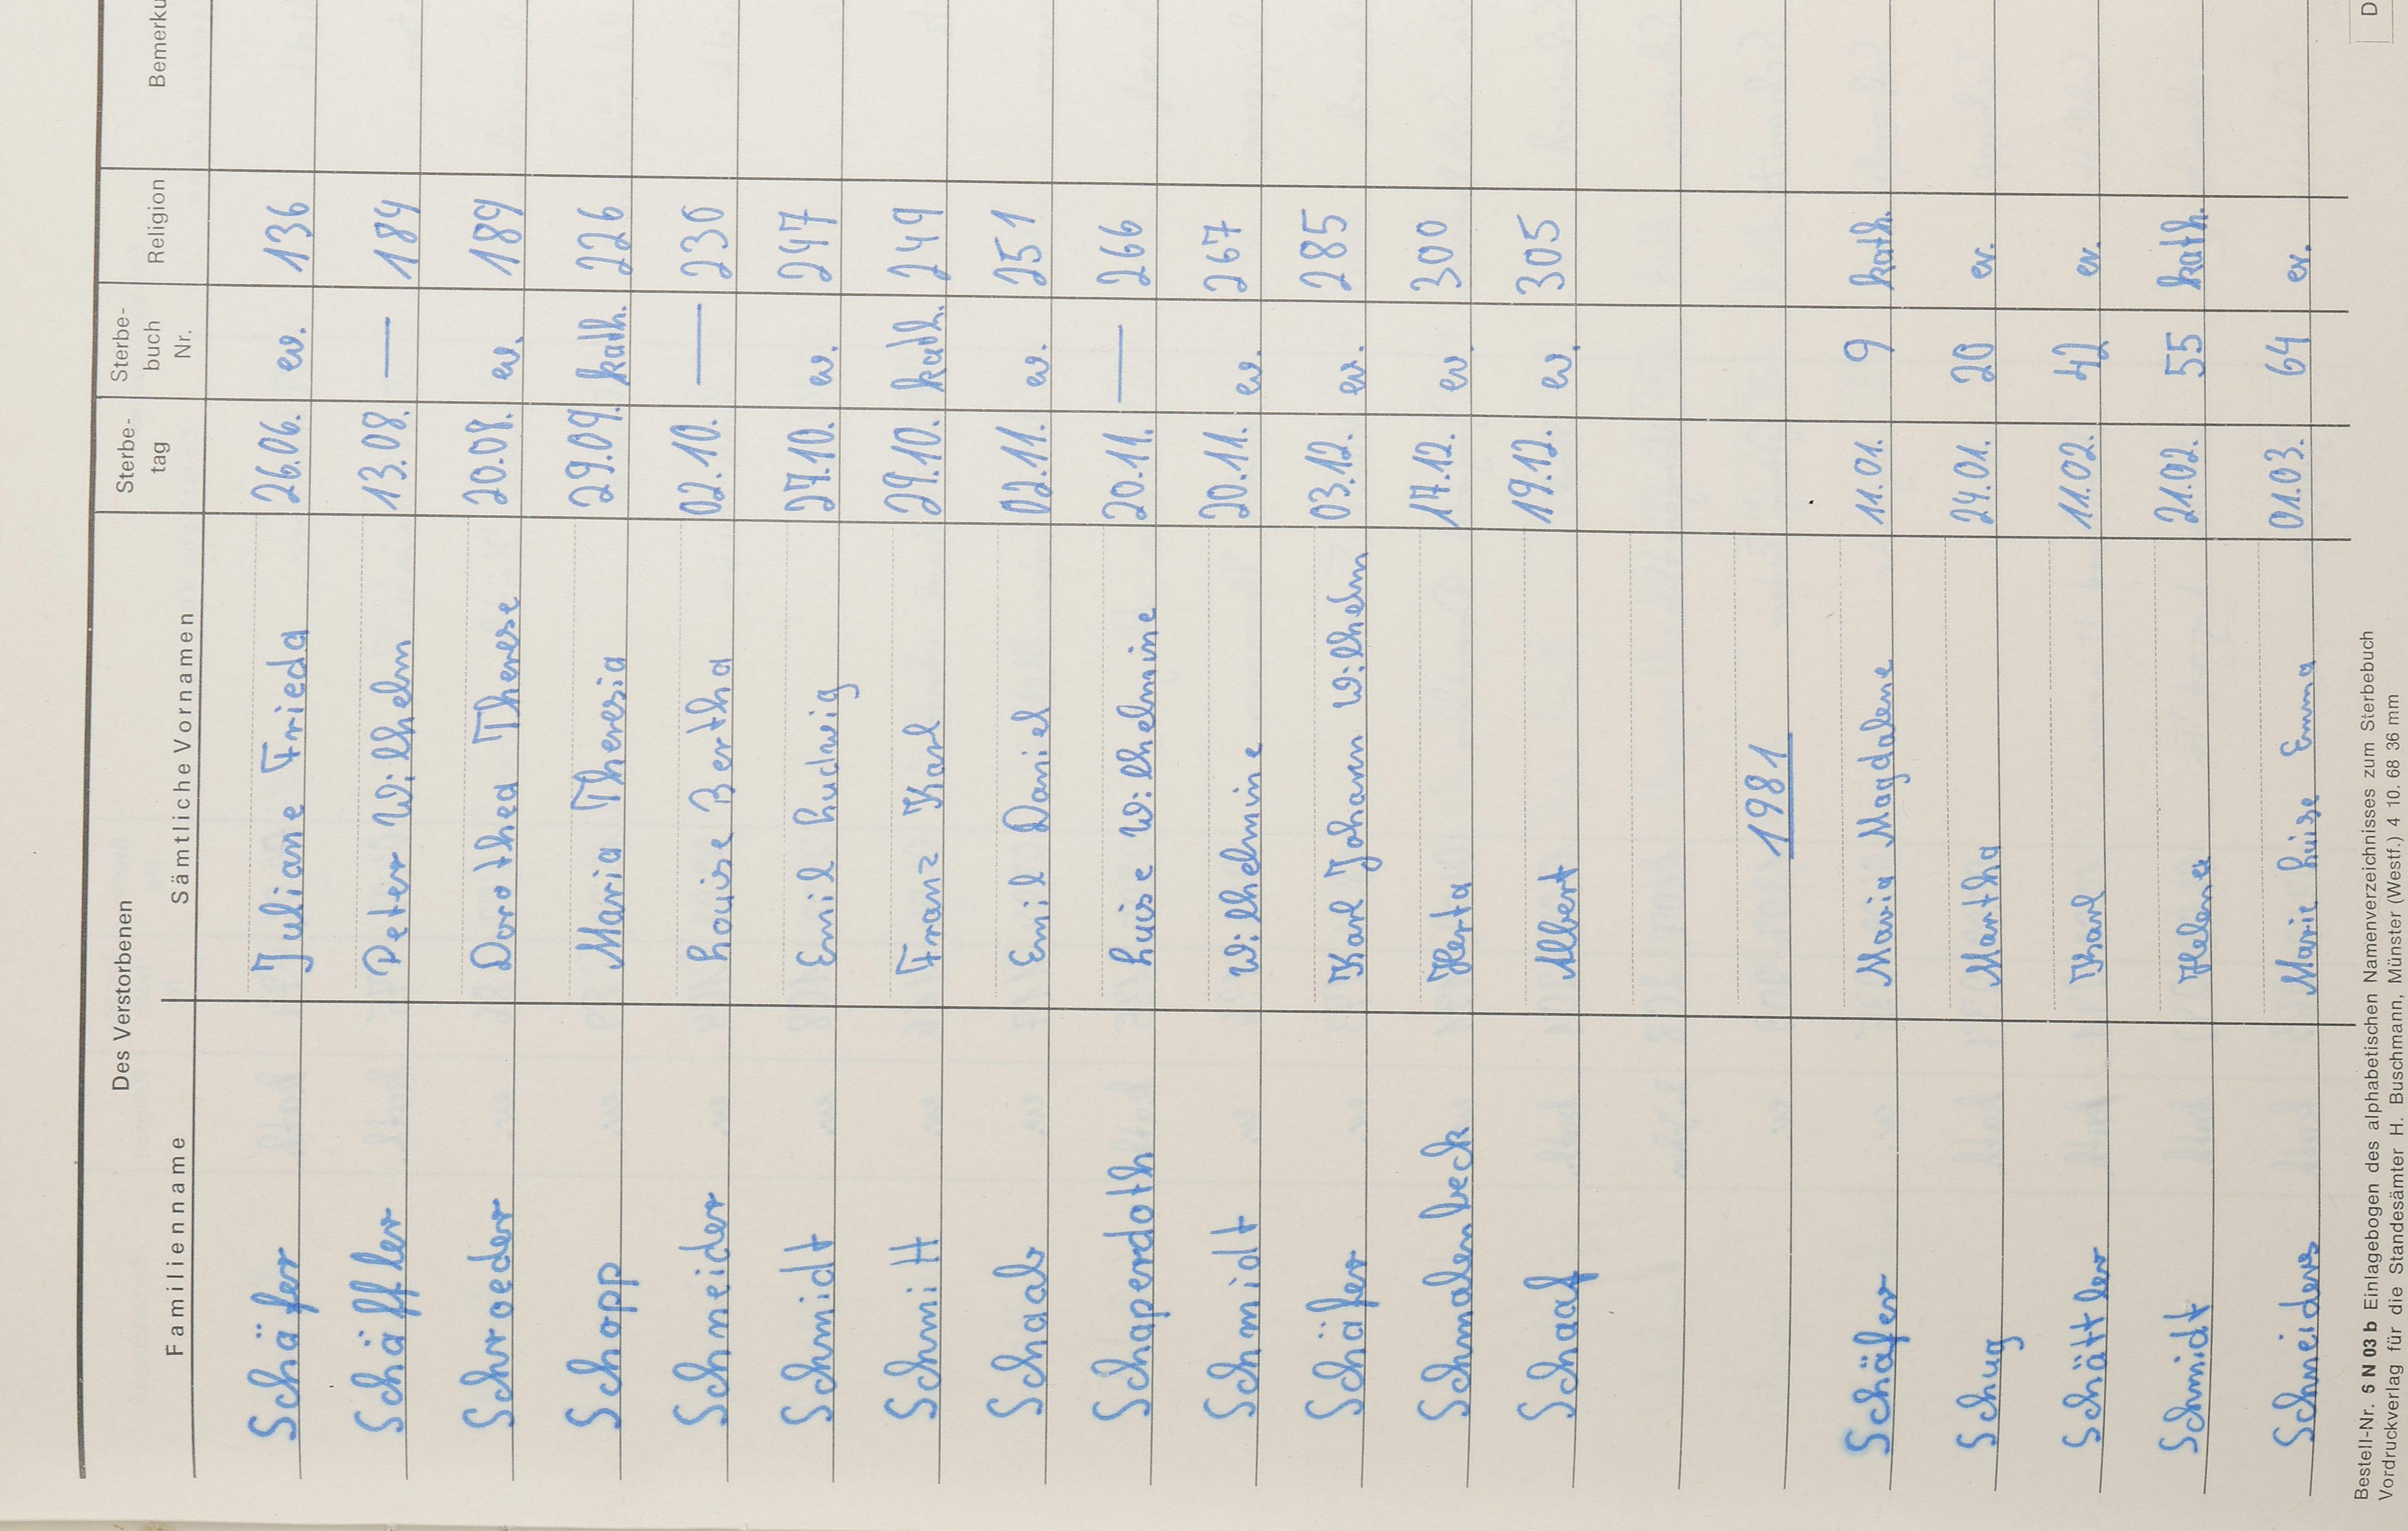 Des Verstorbenen
Familienname Sämtliche Vornamen Sterbe-tag Sterbe-buch Nr. Religion Bemerku
Schäfer Juliane Frieda 26.06. ev. 136
Schäffler Peter Wilhelm 13.08. — 184
Schroeder Dorothea Therese 20.08. ev. 189
Schopp Maria Theresia 29.09. kath. 226
Schneider Louise Bertha 02.10. — 230
Schmidt Emil Ludwig 27.10. ev. 247
Schmitt Franz Karl 29.10. kath. 249
Schaab Emil Daniel 02.11. ev. 251
Schaperdoth Luise Wilhelmine 20.11. — 266
Schmidt Wilhelmine 20.11. ev. 267
Schäfer Karl Johann Wilhelm 03.12. ev. 285
Schmalenbeck Herta 17.12. ev. 300
Schaaf Albert 19.12. ev. 305
1981
Schäfer Maria Magdalene 11.01. 9 kath.
Schug Martha 24.01. 20 ev.
Schättler Karl 11.02. 42 ev.
Schmidt Helena 21.02. 55 kath.
Schneiders Marie Luise Emma 01.03. 64 ev.
Bestell-Nr. 6 N 03 b Einlagebogen des alphabetischen Namenverzeichnisses zum Sterbebuch
Vordruckverlag für die Standesämter H. Buschmann, Münster (Westf.) 4 10. 68 36 mm
D